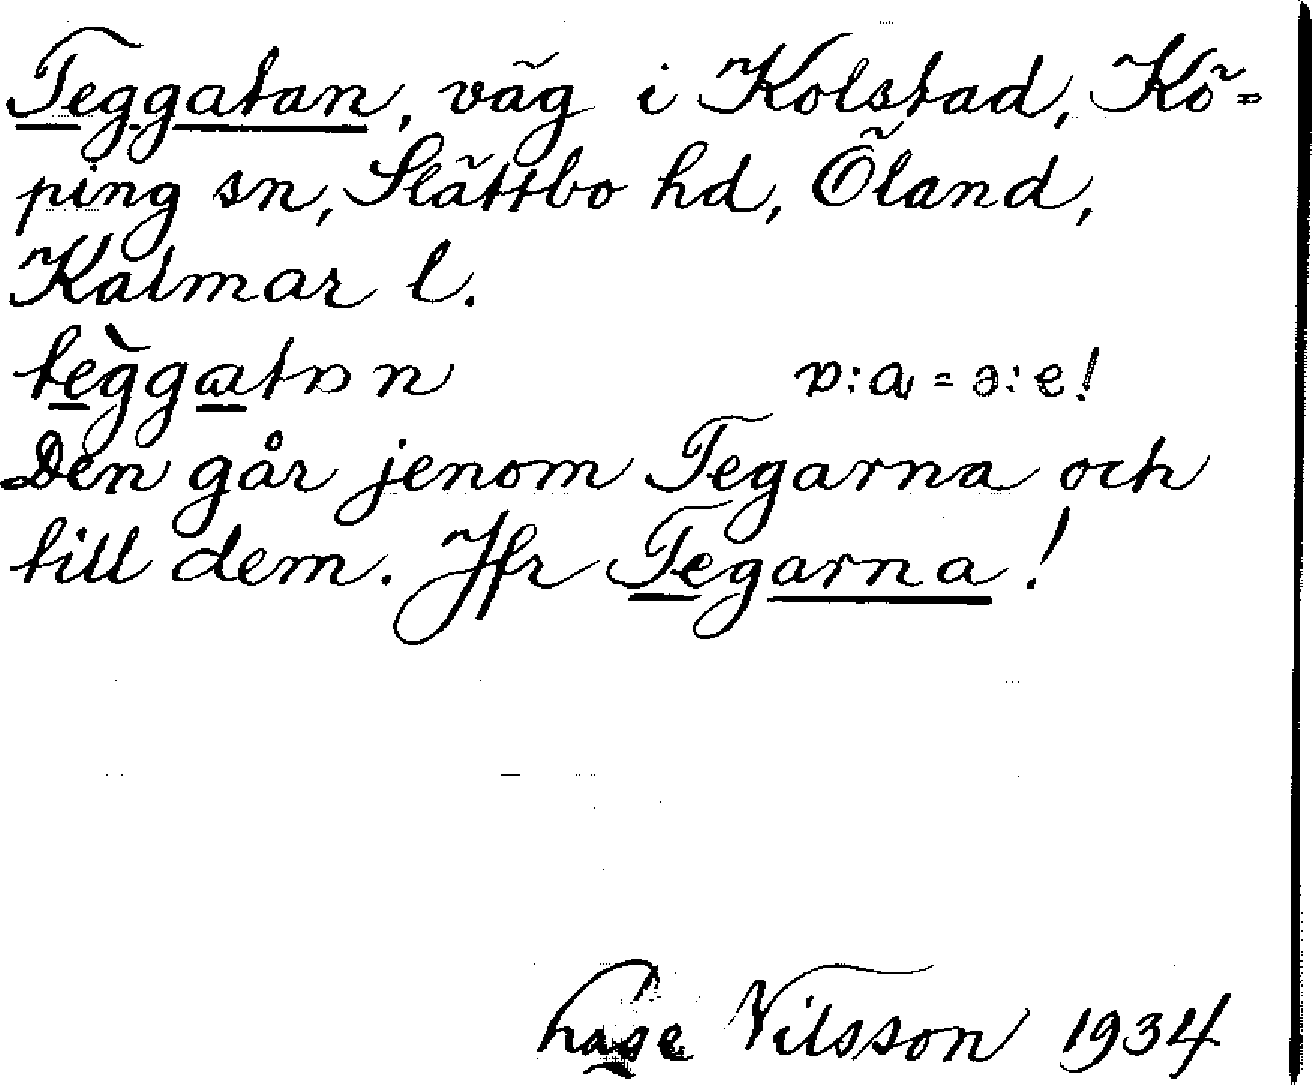 Teggatan, väg i Kolstad, Kö=
ping sn, Slättbo hd, Öland,
Kalmar l.
Den går jenom Tegarna och
till dem. Jfr Tegarna!
Nilsson 1934